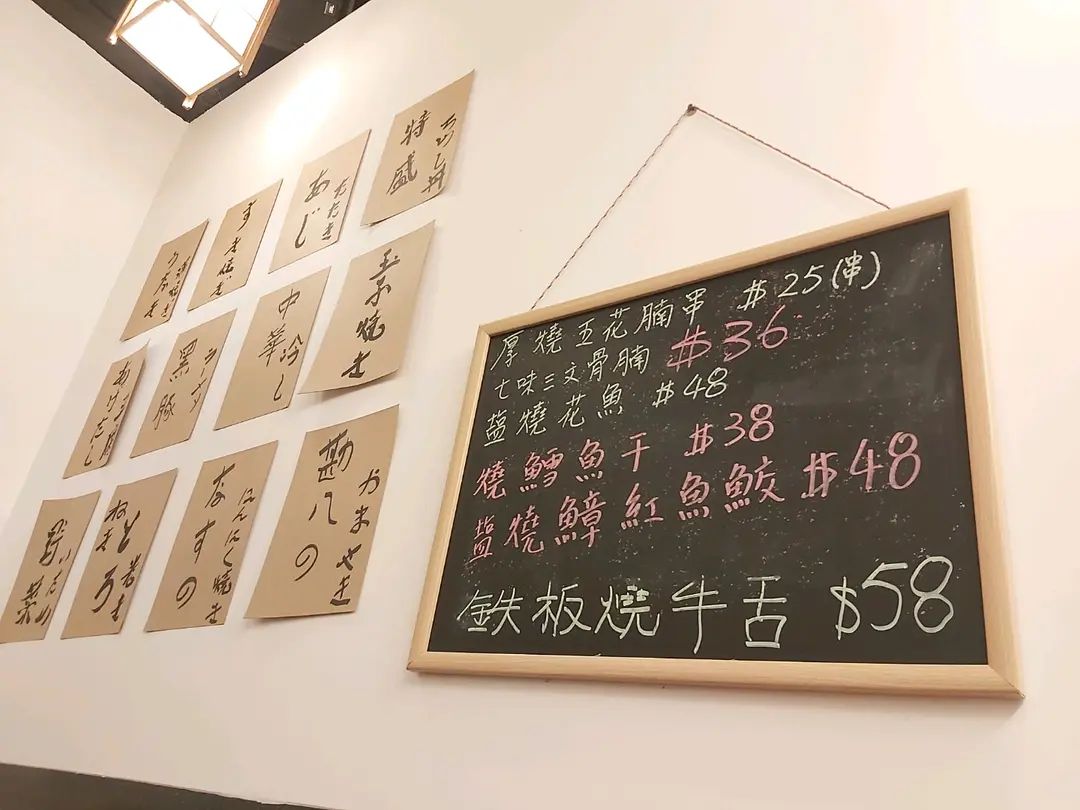 厚燒五花腩串 $25(串)
七味三文骨腩 $36
塩燒花魚 $48
燒鱈魚干 $38
塩燒鱆紅魚鮫 $48
鉄板燒牛舌 $58
特盛
あじ
たたき
すき焼き
うなぎ
玉子焼き
中華
冷し
黒豚
勘八の
かまやき
なすの
にんにく焼き
ねぎとろ
巻き
野菜
いため